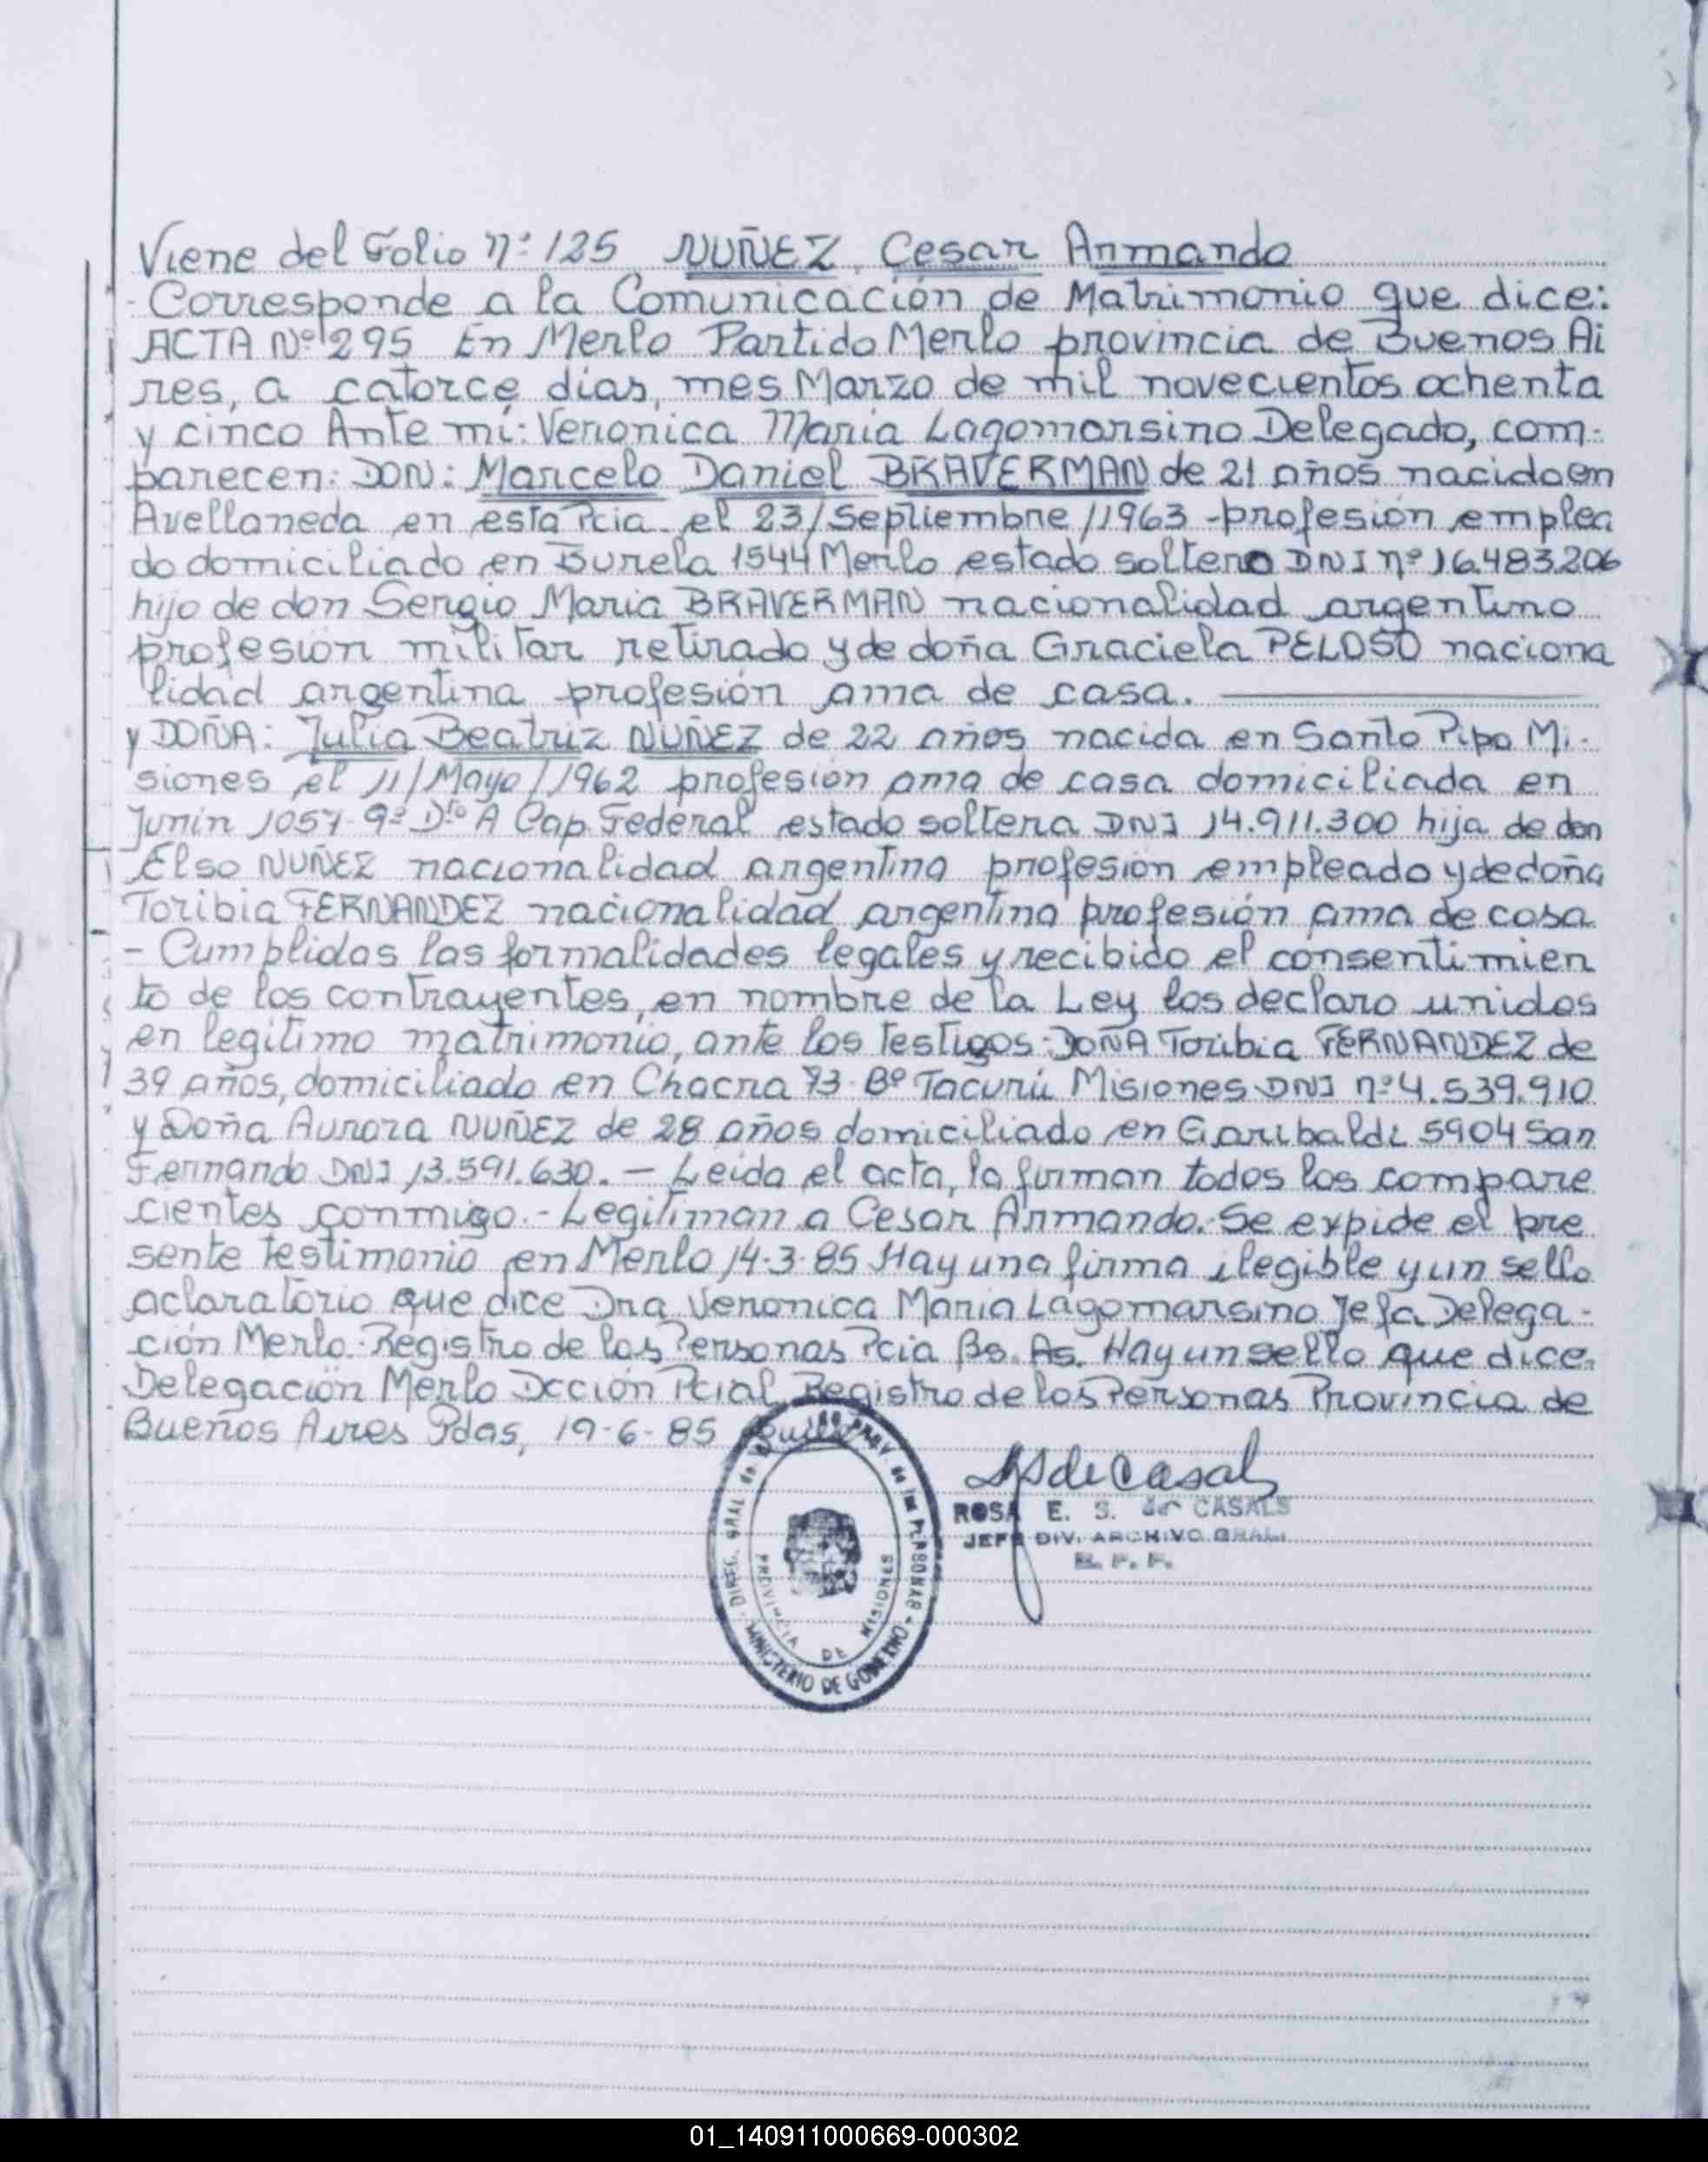 Viene del Folio Nº 125 NUÑEZ, Cesar Armando
- Corresponde a la Comunicación de Matrimonio que dice:
ACTA Nº 295 En Merlo Partido Merlo provincia de Buenos Ai
res, a catorce dias, mes Marzo de mil novecientos ochenta
y cinco Ante mí: Veronica Maria Lagomarsino Delegado, com-
parecen: DON: Marcelo Daniel BRAVERMAN de 21 años nacido en
Avellaneda en esta Pcia el 23/Septiembre/1963 - profesión emplea
do domiciliado en Burela 1544 Merlo estado soltero DNI nº 16.483.206
hijo de don Sergio Maria BRAVERMAN nacionalidad argentino
profesión militar retirado y de doña Graciela PELOSO naciona
lidad argentina profesión ama de casa.
y DOÑA: Julia Beatriz NUÑEZ de 22 años nacida en Santo Pipo Mi-
siones el 11/Mayo/1962 profesión ama de casa domiciliada en
Junin 1057 9º Dto A Cap. Federal estado soltera DNI 14.911.300 hija de don
Elso NUÑEZ nacionalidad argentino profesión empleado y de doña
Toribia FERNANDEZ nacionalidad argentina profesión ama de casa
- Cumplidas las formalidades legales y recibido el consentimien
to de los contrayentes, en nombre de la Ley los declaro unidos
en legitimo matrimonio, ante los testigos: DOÑA Toribia FERNANDEZ de
39 años, domiciliado en Chacra 73 Bº Tacurú Misiones DNI nº 4.539.910
y Doña Aurora NUÑEZ de 28 años domiciliado en Garibaldi 5904 San
Fernando DNI 13.591.630. - Leida el acta, la firman todos los compare
cientes conmigo. - Legitiman a Cesar Armando. - Se expide el pre
sente testimonio en Merlo 14-3-85 Hay una firma ilegible y un sello
aclaratorio que dice Dra Veronica Maria Lagomarsino Jefa Delega-
ción Merlo - Registro de las Personas Pcia Bs. As. Hay un sello que dice
Delegación Merlo Dcción Pcial Registro de las Personas Provincia de
Buenos Aires Pdas, 19-6-85
DIREC. GRAL de PROV. de las PERSONAS
PROVINCIA DE MISIONES
MINISTERIO DE GOBIERNO
de Casals
ROSA E. S. de CASALS
JEFE DIV. ARCHIVO GRAL.
R. P. P.
01_140911000669-000302